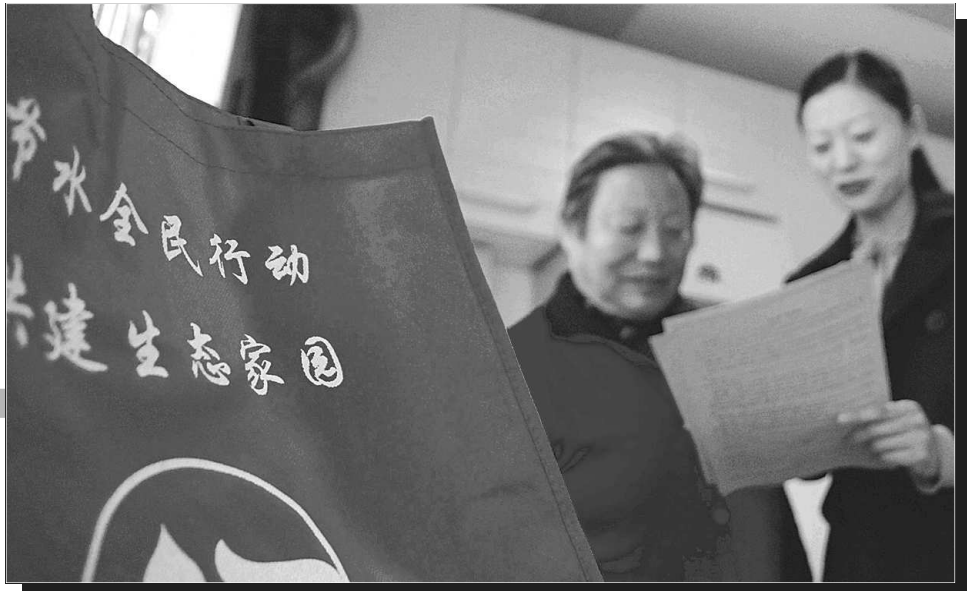 节水全民行动
共建生态家园